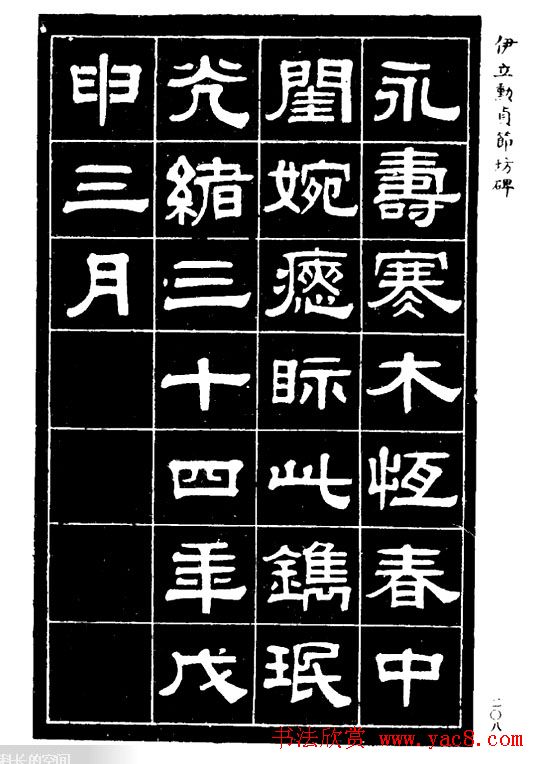 伊立勳貞節坊碑
永壽寒木恆春中
閨婉瘱眎此鐫珉
光緒三十四年戊
申三月
二〇八
书法欣赏 www.yac8.com
长的空间